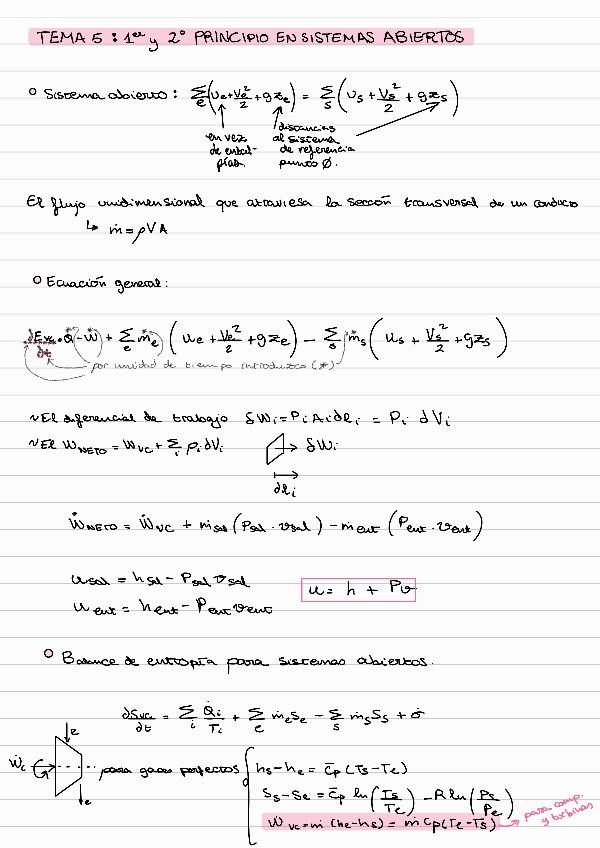 TEMA 5 : 1er y 2º PRINCIPIO EN SISTEMAS ABIERTOS
Sistema abierto : Σe (ue + Ve²/2 + gze) = Σs (us + Vs²/2 + gzs)
en vez de entalpías.
distancias al sistema de referencia punto Ø.
El flujo unidimensional que atraviesa la sección transversal de un conducto
↳ ṁ = ρVA
Ecuación general:
dEvc/dt = Q̇ - Ẇ + Σe ṁe (ue + Ve²/2 + gze) - Σs ṁs (us + Vs²/2 + gzs)
por unidad de tiempo introduzco (*)
~ El diferencial de trabajo δWi = Pi Ai dli = Pi dVi
~ El WNETO = WVC + Σi Pi dVi
→ δWi
dli
ẆNETO = ẆVC + ṁsal (Psal · vsal) - ṁent (Pent · vent)
usal = hsal - Psal vsal
u = h + Pv
uent = hent - Pent vent
Balance de entropía para sistemas abiertos.
dSvc/dt = Σi Q̇i/Ti + Σe ṁe se - Σs ṁs ss + σ̇
e
Ẇi
e
para gases perfectos
hs - he = c̄p (Ts - Te)
Ss - Se = c̄p ln (Ts/Te) - R ln (Ps/Pe)
Ẇvc = ṁ (he - hs) = ṁ cp (Te - Ts)
para comp. y turbinas